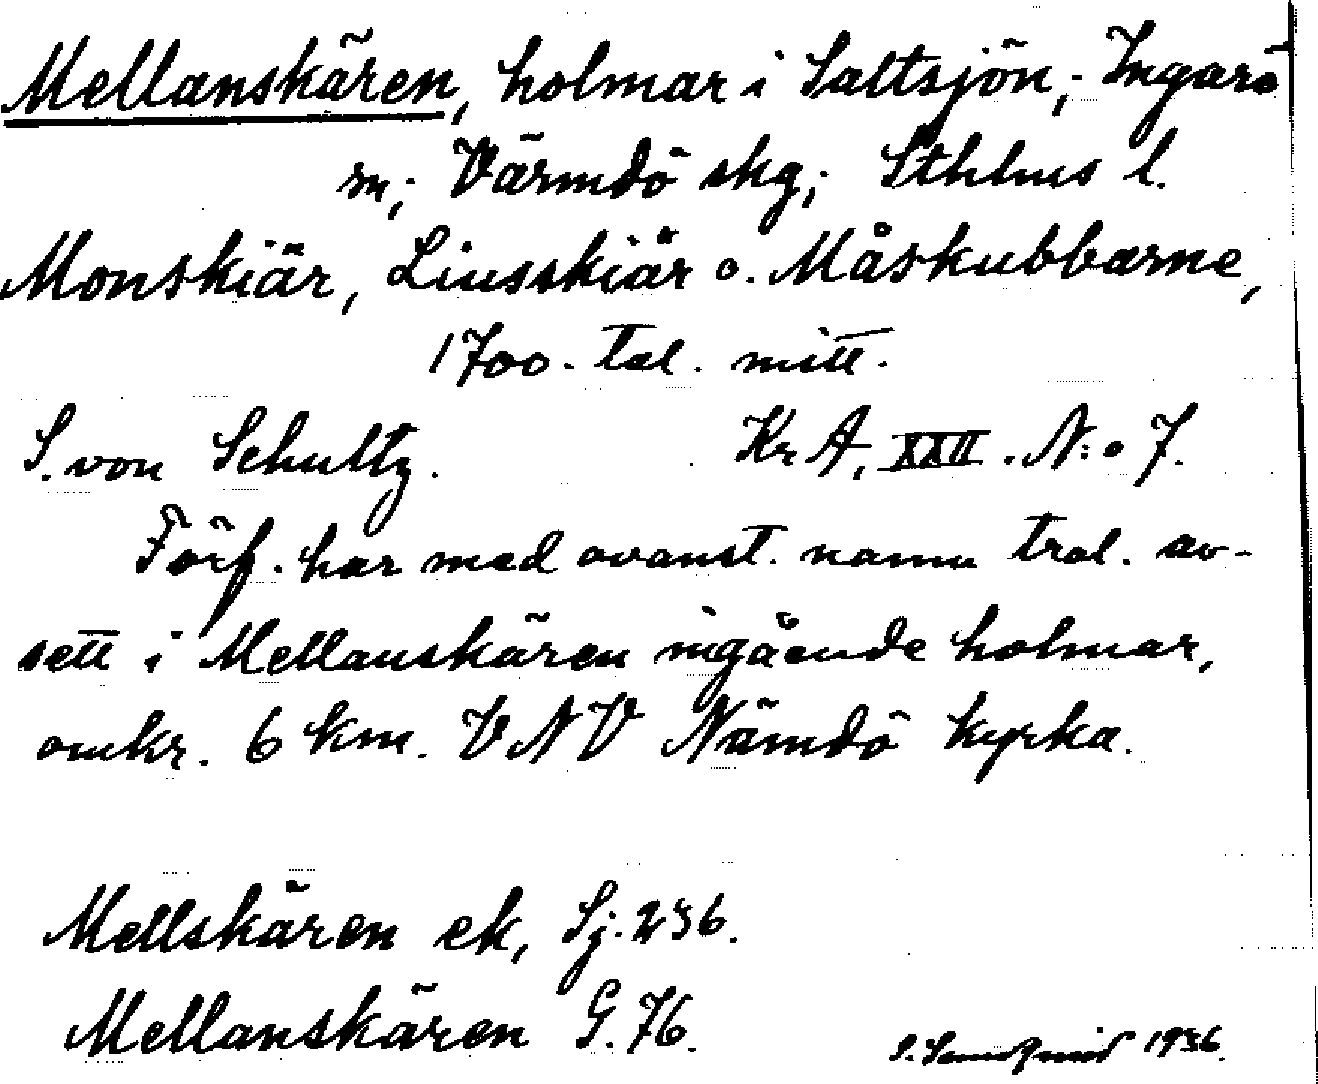 Mellanskären, holmar i Saltsjön; Ingarö
sn; Värmdö skg; Sthlms l.
Monskiär, Liusskiär o. Måskubbarne,
1700-tal. mitt.
S. von Schultz. Kr A, XXII. N:o 7.
Förf. har med ovanst. namn trol. av-
sett i Mellanskären ingående holmar,
omkr. 6 km. VNV Nämdö kyrka.
Mellskären ek, Sj. 236.
Mellanskären G. 76.
1936.